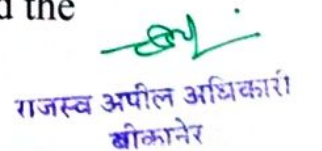 d the
राजस्व अपील अधिकारी
बीकानेर